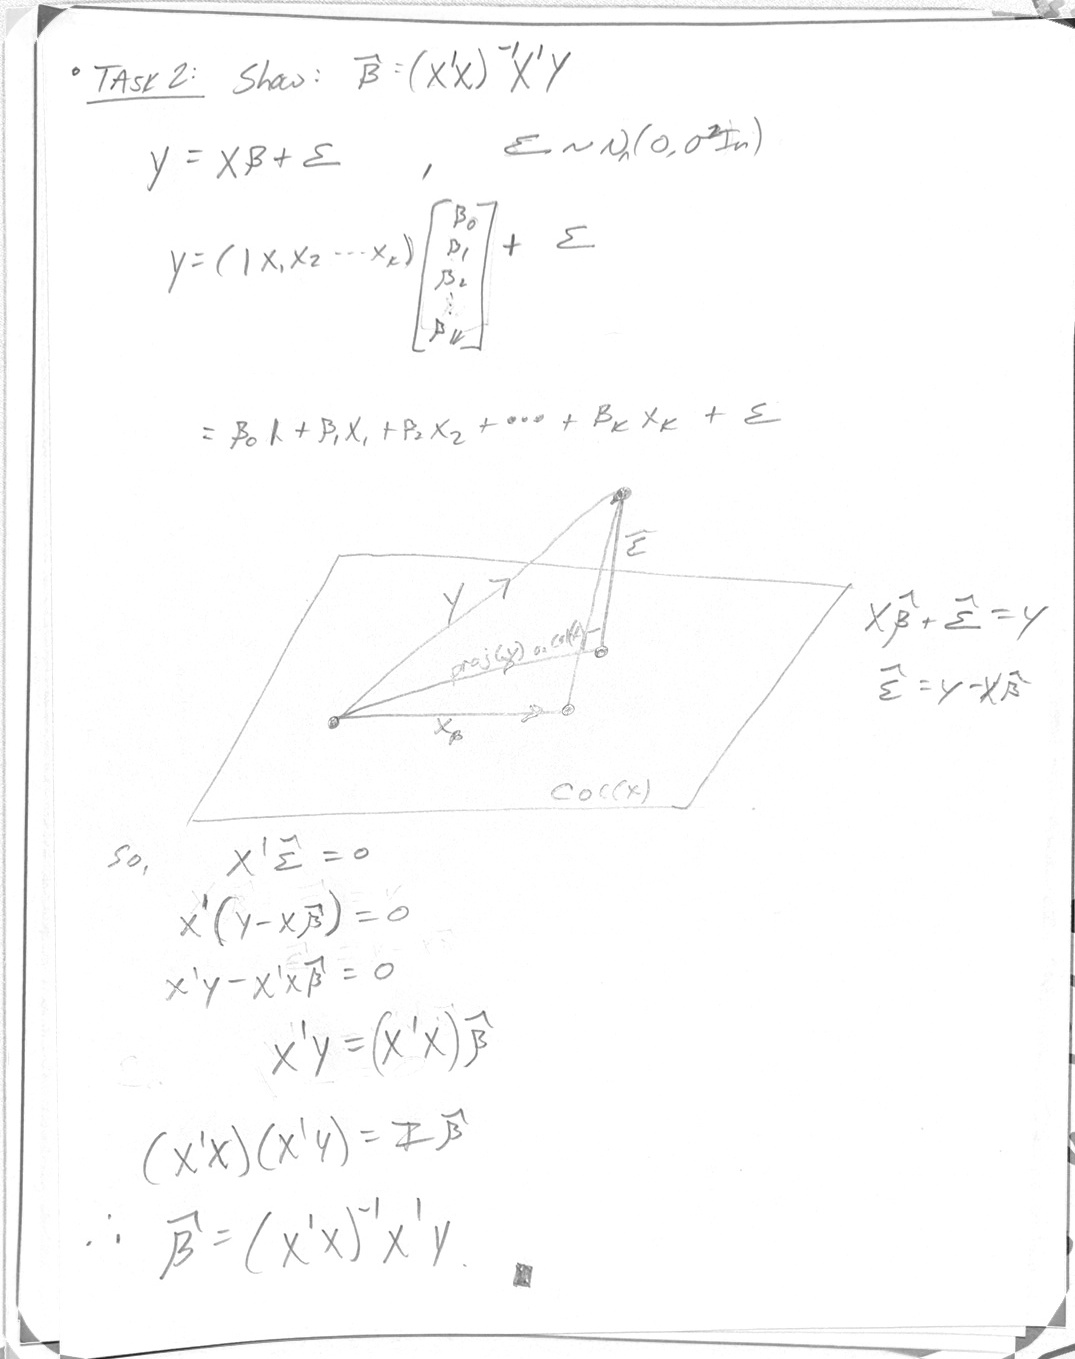 • TASK 2: Show: β̂ = (X'X)⁻¹X'Y
y = Xβ + ε , ε ~ Nₙ(0, σ²Iₙ)
y = (1 x₁ x₂ ... xₖ) [β₀ β₁ β₂ ⋮ βₖ] + ε
= β₀1 + β₁X₁ + β₂X₂ + ... + βₖXₖ + ε
ε̂
y
proj(y) on col(x)
Xβ
Col(x)
Xβ̂ + ε̂ = y
ε̂ = y - Xβ̂
So, X'ε̂ = 0
X'(y - Xβ̂) = 0
X'y - X'Xβ̂ = 0
X'y = (X'X)β̂
(X'X)(X'y) = Iβ̂
∴ β̂ = (X'X)⁻¹X'y.